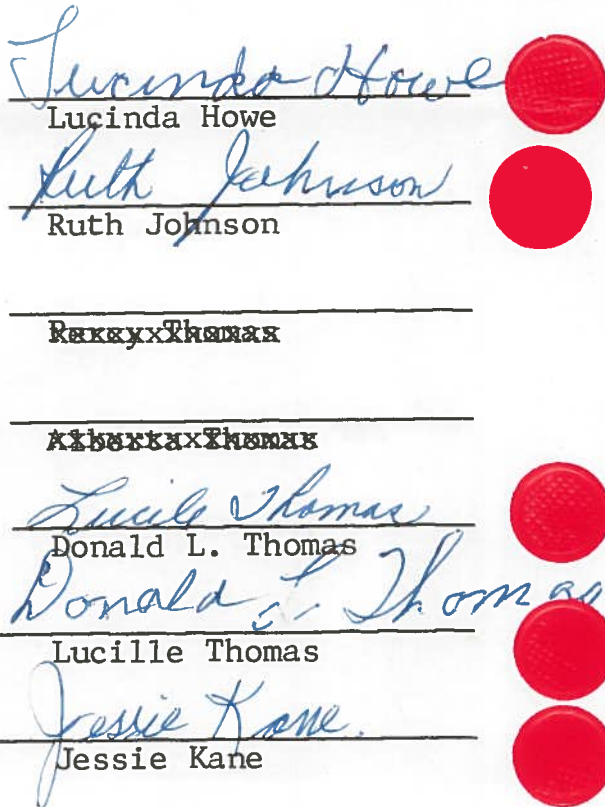 Lucinda Howe
Lucinda Howe
Ruth Johnson
Ruth Johnson
Percy Thomas
Alberta Thomas
Lucile Thomas
Donald L. Thomas
Donald L. Thomas
Lucille Thomas
Jessie Kane.
Jessie Kane